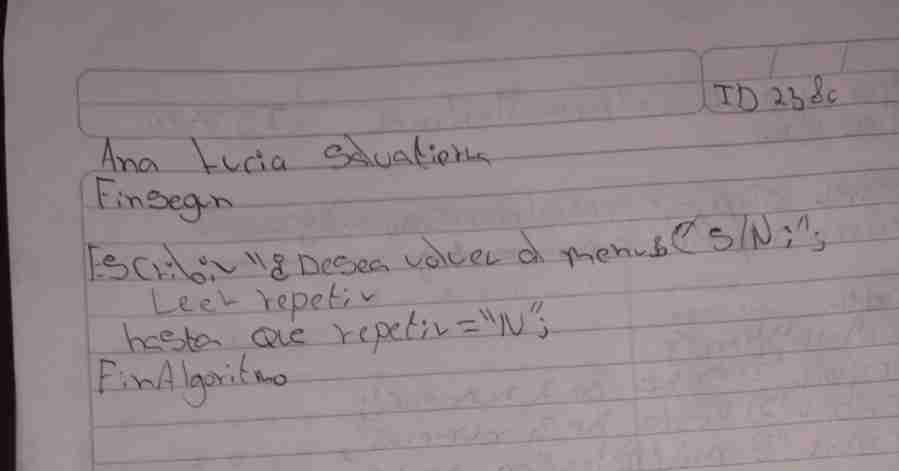 ID 238c
Ana Lucia Salvatierra
FinSegun
Escribir "¿Desea volver al menu? (S/N:";
Leer repetir
hasta que repetir="N";
FinAlgoritmo